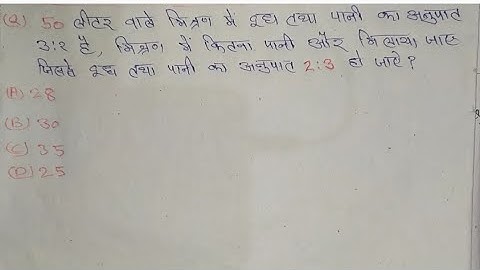 (Q) 50 लीटर वाले मिश्रण में दूध तथा पानी का अनुपात
3:2 है, मिश्रण में कितना पानी और मिलाया जाए
जिससे दूध तथा पानी का अनुपात 2:3 हो जाये?
(A) 28
(B) 30
(C) 35
(D) 25